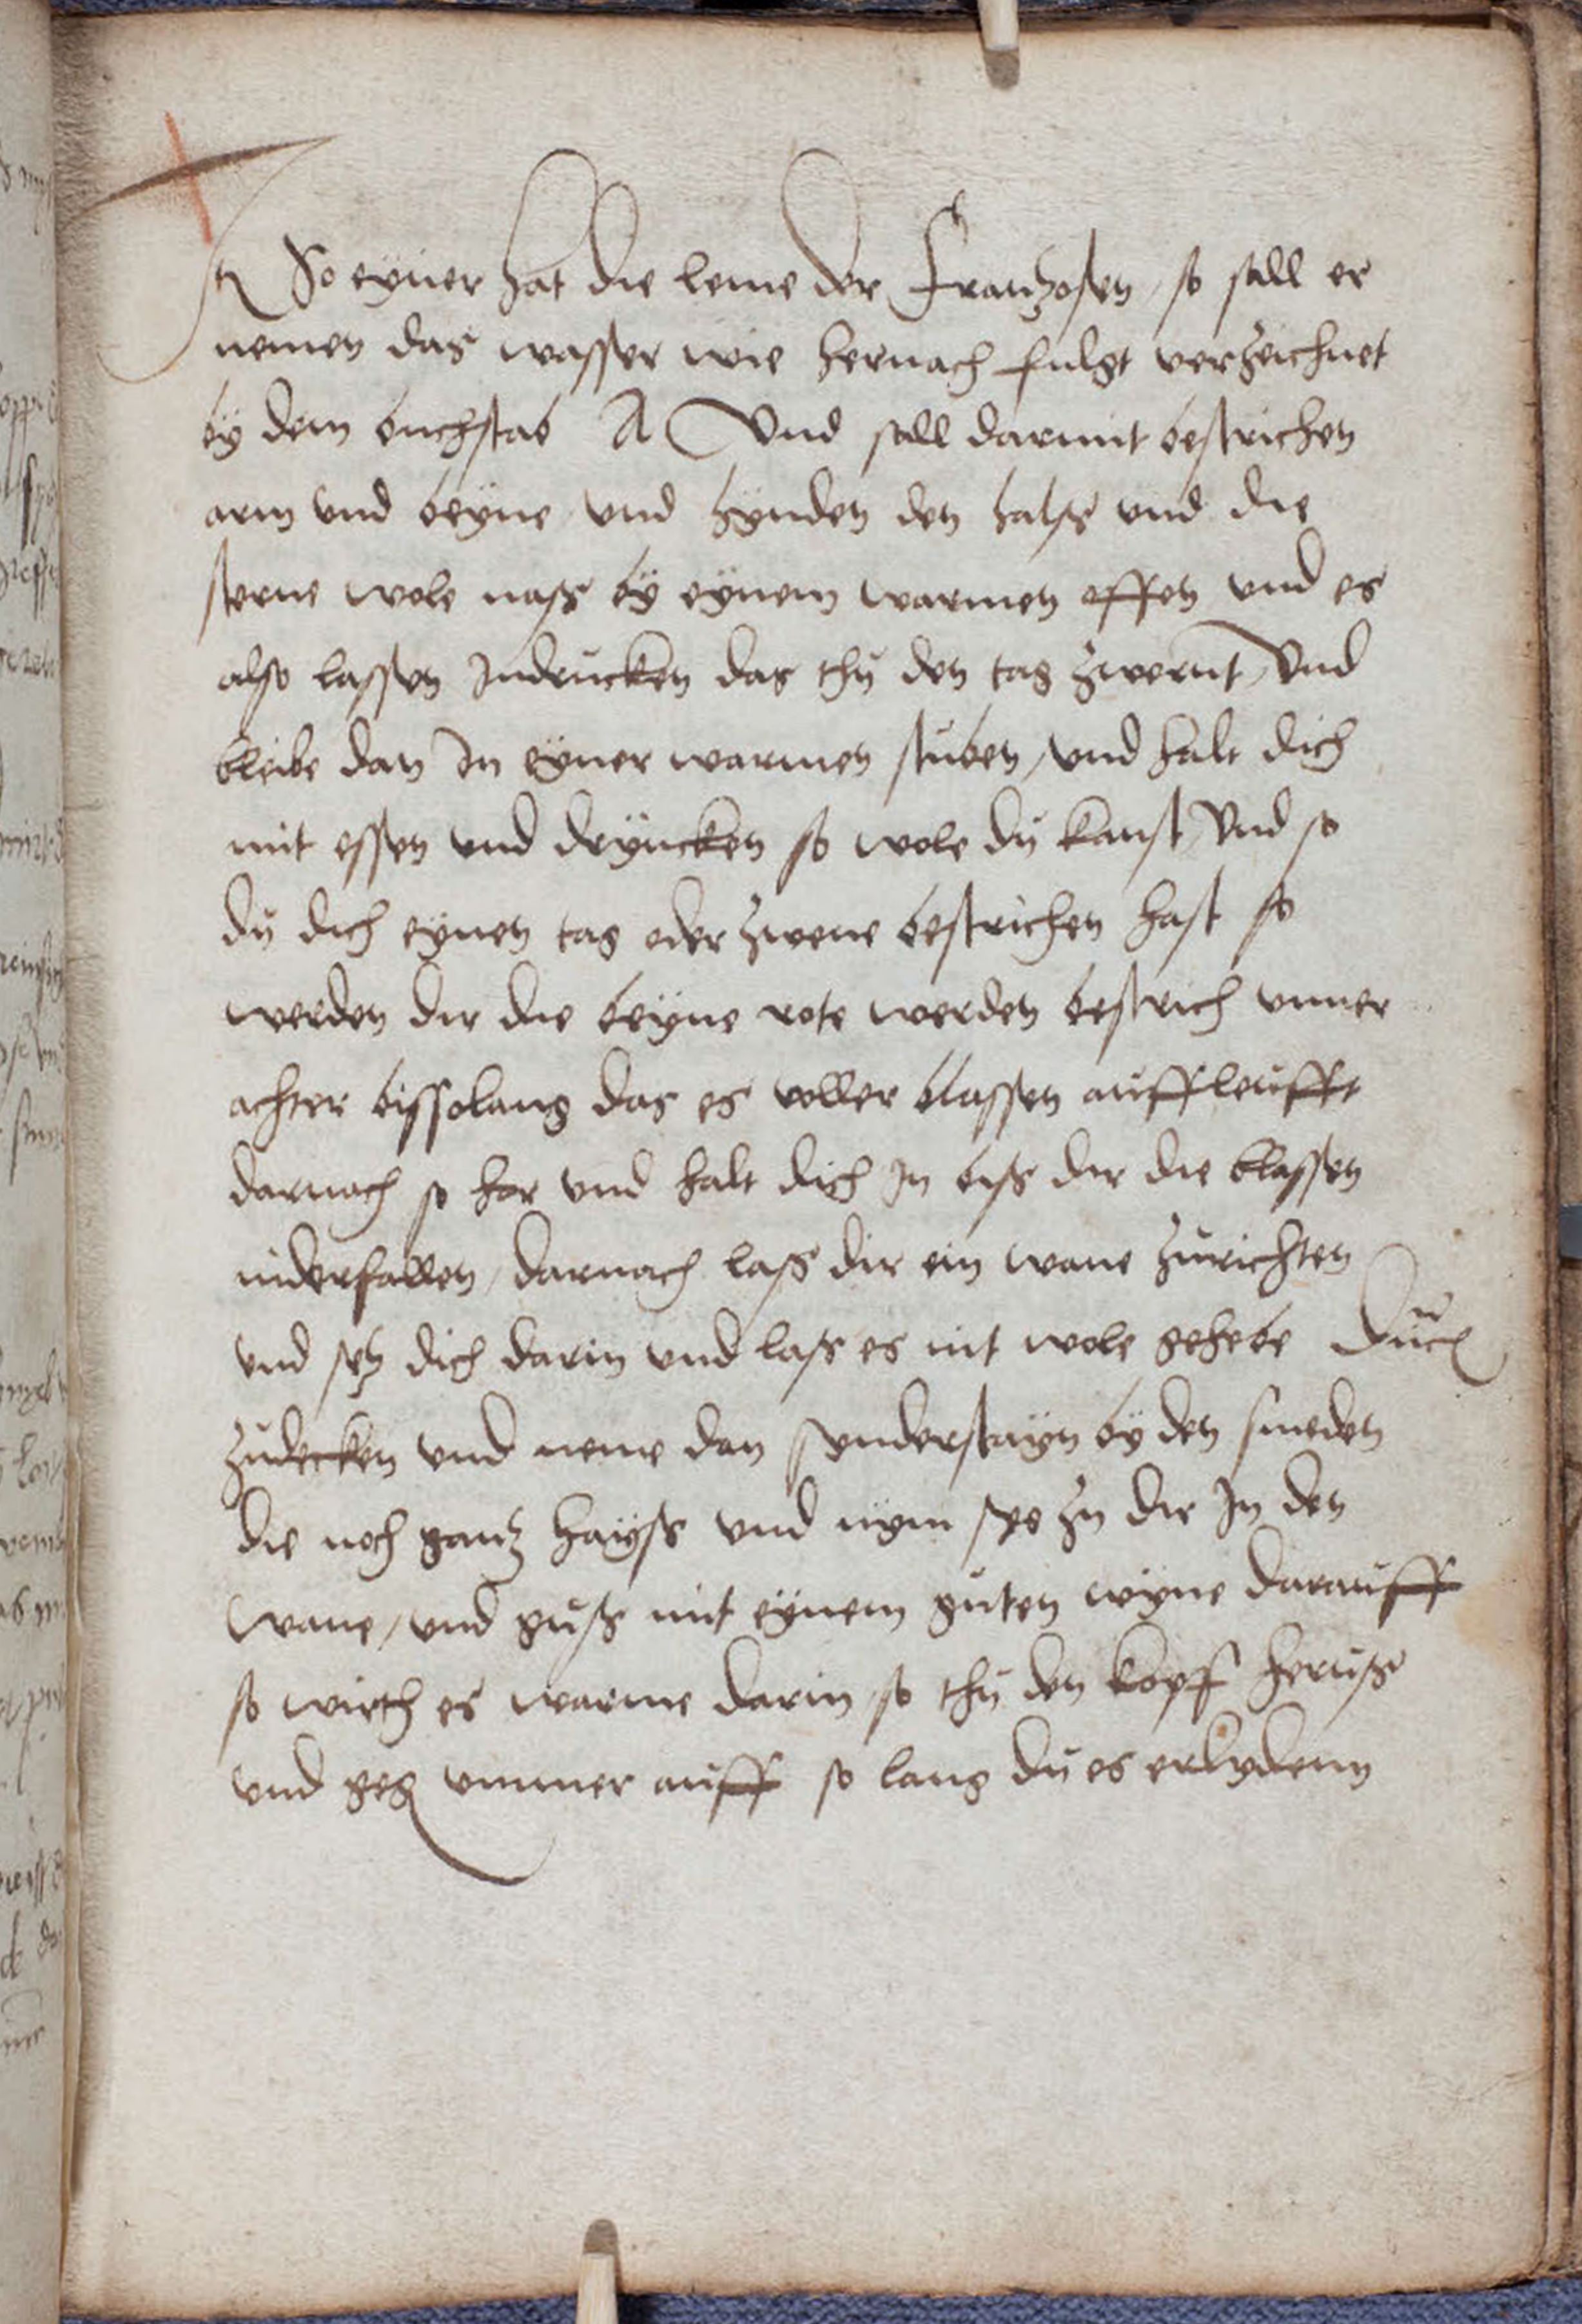 It So eyner hat die leme der frantzosen / so sall er
nemen das wasser wie hernach fulgt verzeichnet
by dem buchstab A Vnd sall darmit bestrichen
arm vnd beyne vnd hynden den halss vnd die
sterne wole nass by eynem warmen offen vnd es
also lassen Indrucken das thu den tag zwernt / Vnd
bleibe dan In eyner warmen stuben / vnd halt dich
mit essen vnd dryncken so wole du kanst / Vnd so
du dich eynen tag oder zwene bestrichen hast so
werden dir die beyne rote werden bestrich ymmer
achter bissolang das es voller blassen auffleufft
darnach so hor vnd halt dich In biss dir die blassen
niderfallen / darnach lass dir ein wane zurichten
vnd setz dich darin vnd lass es mit wole gehebe duch
zudecken vnd neme dan synderstayn by den smeden
die noch gantz hayss vnd nym sye zu dir In den
wane / vnd guss mit eynem guten wyne darauff
so wirth es warme darin / so thu den kopf heruss
vnd geg ymmer auff so lang du es erlydenn